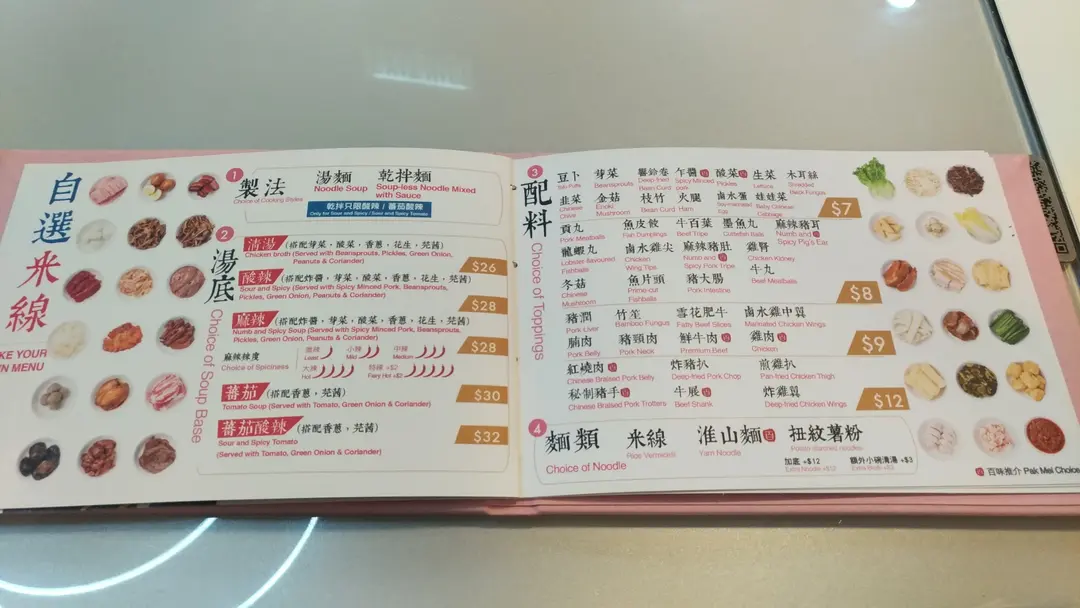 自選米線
KE YOUR
N MENU
1 製法
Choice of Cooking Styles
湯麵 乾拌麵
Noodle Soup Soup-less Noodle Mixed with Sauce
乾拌只限酸辣 / 蕃茄酸辣
Only for Sour and Spicy / Sour and Spicy Tomato
2 湯底
Choice of Soup Base
清湯 (搭配芽菜，酸菜，香蔥，花生，芫茜)
Chicken broth (Served with Beansprouts, Pickles, Green Onion, Peanuts & Coriander)
$26
酸辣 (搭配炸醬，芽菜，酸菜，香蔥，花生，芫茜)
Sour and Spicy (Served with Spicy Minced Pork, Beansprouts, Pickles, Green Onion, Peanuts & Coriander)
$28
麻辣 (搭配炸醬，芽菜，酸菜，香蔥，花生，芫茜)
Numb and Spicy Soup (Served with Spicy Minced Pork, Beansprouts, Pickles, Green Onion, Peanuts & Coriander)
$28
麻辣辣度
Choice of Spiciness
微辣 小辣 中辣
Least Mild Medium
大辣 特辣 +$2
Hot Fiery Hot +$2
蕃茄 (搭配香蔥，芫茜)
Tomato Soup (Served with Tomato, Green Onion & Coriander)
$30
蕃茄酸辣 (搭配香蔥，芫茜)
Sour and Spicy Tomato
(Served with Tomato, Green Onion & Coriander)
$32
3 配料
Choice of Toppings
豆卜 芽菜 響鈴卷 乍醬 酸菜 生菜 木耳絲
Tofu Puffs Beansprouts Deep-fried Bean Curd Spicy Minced Pork Pickles Lettuce Shredded Black Fungus
韭菜 金菇 枝竹 火腿 鹵水蛋 娃娃菜
Chinese Chive Enoki Mushroom Bean Curd Ham Marinated Egg Baby Chinese Cabbage
$7
貢丸 魚皮餃 牛百葉 墨魚丸 麻辣豬耳
Pork Meatballs Fish Dumplings Beef Tripe Cuttlefish Balls Numb and Spicy Pig's Ear
龍蝦丸 鹵水雞尖 麻辣豬肚 雞腎
Lobster-flavoured Fishballs Chicken Wing Tips Numb and Spicy Pork Tripe Chicken Kidney
冬菇 魚片頭 豬大腸 牛丸
Chinese Mushroom Prime-cut Fishballs Pork Intestine Beef Meatballs
$8
豬潤 竹笙 雪花肥牛 鹵水雞中翼
Pork Liver Bamboo Fungus Fatty Beef Slices Marinated Chicken Wings
腩肉 豬頸肉 鮮牛肉 雞肉
Pork Belly Pork Neck Premium Beef Chicken
$9
紅燒肉 炸豬扒 煎雞扒
Chinese Braised Pork Belly Deep-fried Pork Chop Pan-fried Chicken Thigh
秘制豬手 牛展 炸雞翼
Chinese Braised Pork Trotters Beef Shank Deep-fried Chicken Wings
$12
4 麵類 米線 淮山麵 扭紋薯粉
Choice of Noodle Rice Vermicelli Yam Noodle Potato starched noodles
加底 +$12 額外小碗清湯 +$3
Extra Noodle +$12 Extra Broth +$3
百味推介 Pak Mei Choice